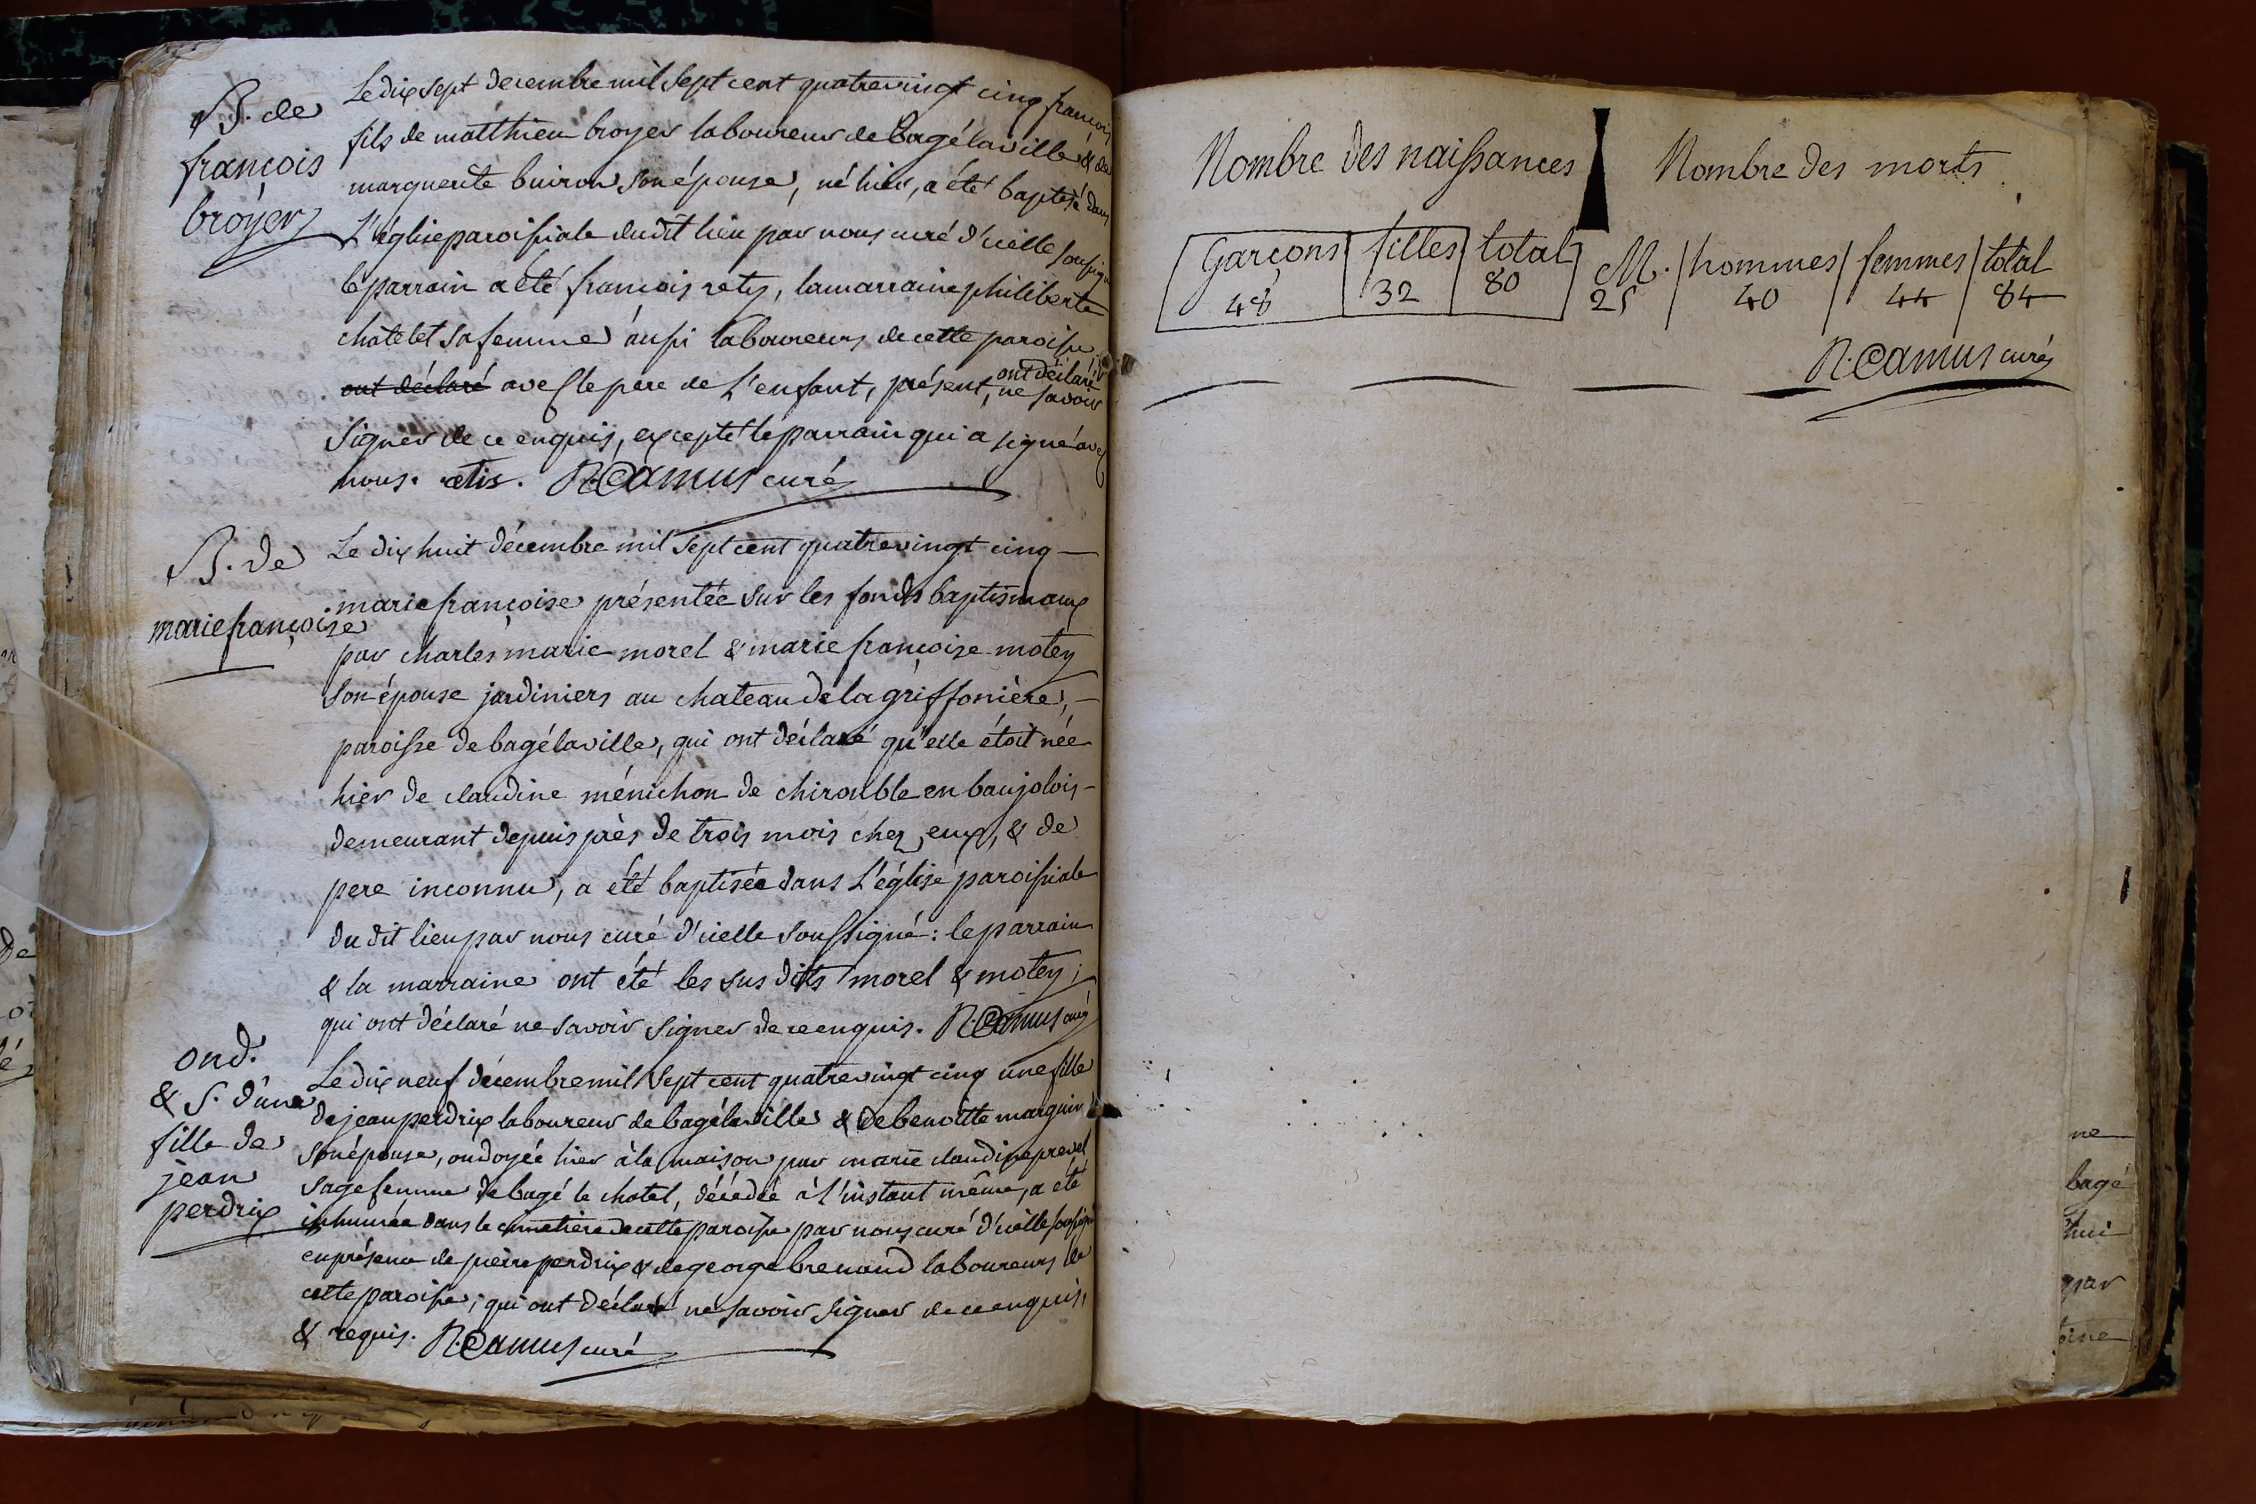 B. de
françois
broyer
Le dix sept decembre mil sept cent quatrevingt cinq françois
fils de matthieu broyer laboureur de Bagélaville & de
marguerite buiron son épouse, né hier, a été baptisé dans
L'église paroissiale dudit lieu par nous curé d'icelle soussigné
le parrain a été françois rety, la marraine philiberte
chatelet sa femme aussi laboureurs de cette paroisse
ont déclaré avec le pere de L'enfant, présent, ont déclaré ne savoir
signer de ce enquis, excepté le parrain qui a signé avec
nous. retis. R. Camus curé
B. de
marie françoise
Le dix huit décembre mil sept cent quatrevingt cinq
marie françoise présentée sur les fonds baptismaux
par charles marie morel & marie françoise motey
son épouse jardiniers au chateau de la griffonière,
paroisse de bagélaville, qui ont déclaré qu'elle étoit née
hier de claudine ménichon de chirouble en baujolois
demeurant depuis près de trois mois chez eux, & de
pere inconnu, a été baptisée dans L'église paroissiale
du dit lieu par nous curé d'icelle soussigné : le parrain
& la marraine ont été les sus dits morel & motey ;
qui ont déclaré ne savoir signer de ce enquis. R. Camus curé
ond.
& S. d'une
fille de
jean
perdrix
Le dix neuf décembre mil sept cent quatrevingt cinq une fille
de jean perdrix laboureur de bagélaville & de benoitte marguin
son épouse, ondoyée hier à la maison par marie claudine prevel
sage femme de bagé le chatel, décédée à l'instant même, a été
inhumée dans le cimetière de cette paroisse par nous curé d'icelle soussigné
en présence de pierre perdrix & de george brenaud laboureurs de
cette paroisse ; qui ont déclaré ne savoir signer de ce enquis,
& requis. R. Camus curé
Nombre des naissances
Nombre des morts
Garçons filles total
48 32 80
M. hommes femmes total
25 40 44 84
R. Camus curé
ne
bagé
par